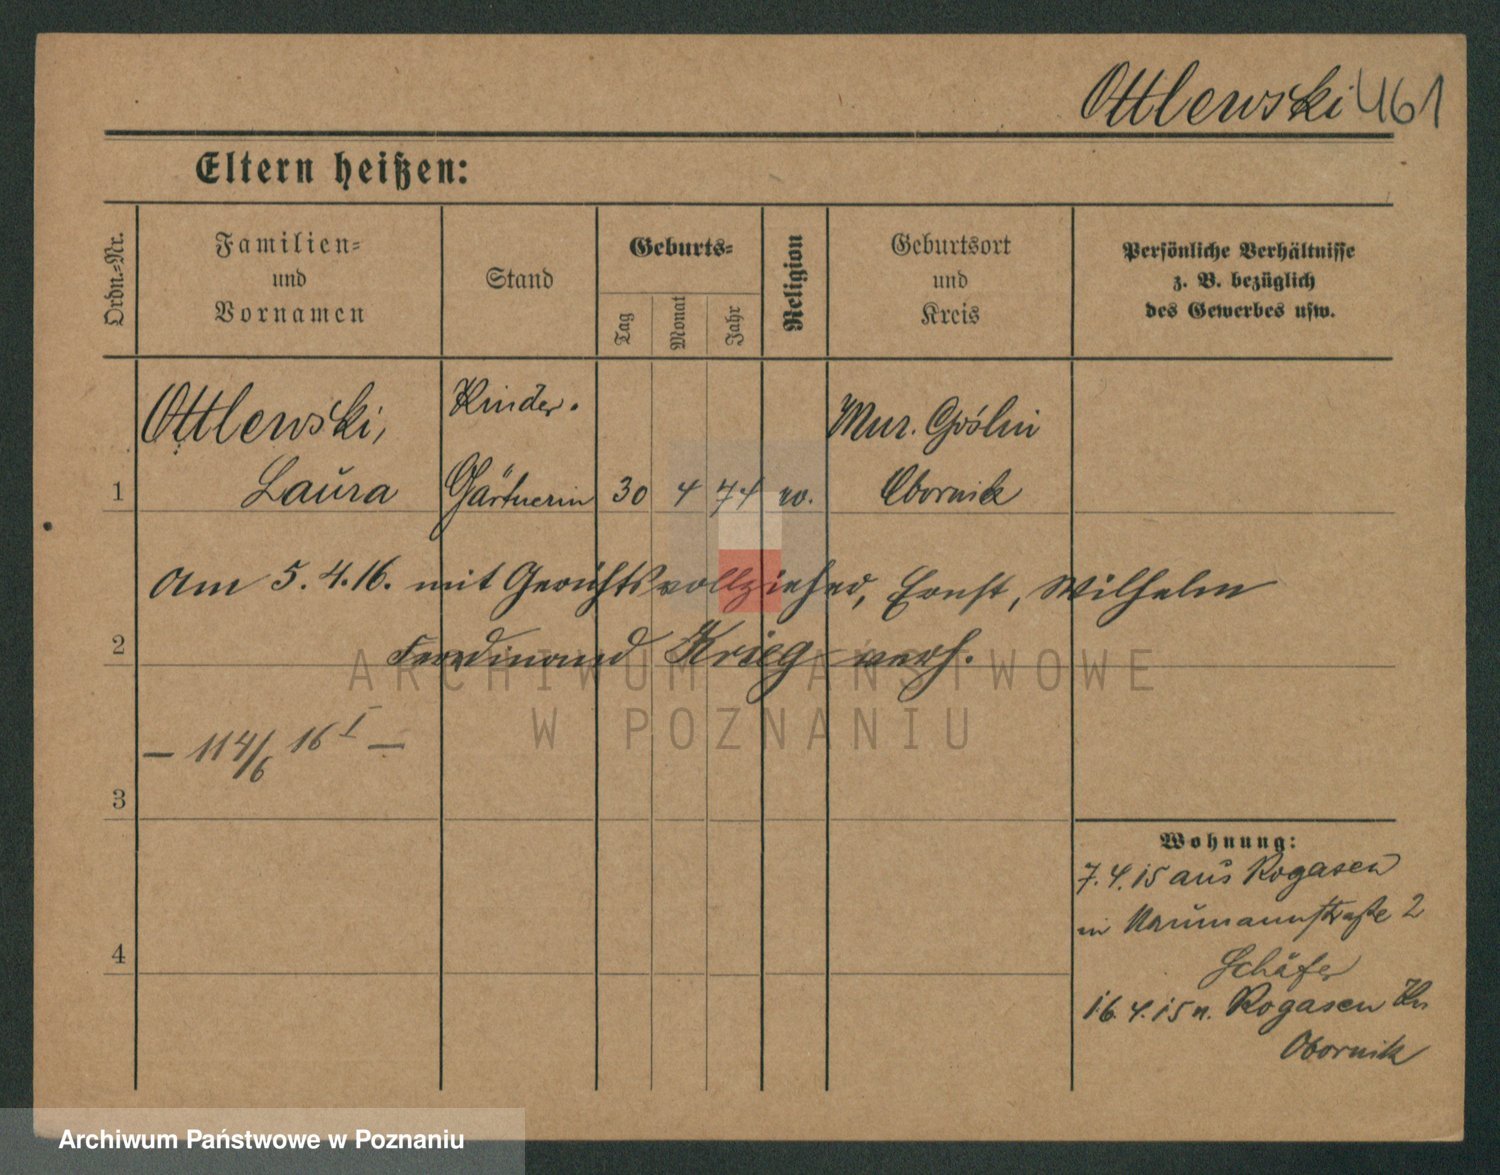 Ottlewski 461
Eltern heißen:
Ordn.=Nr.
Familien=
und
Vornamen
Stand
Geburts=
Tag
Monat
Jahr
Religion
Geburtsort
und
Kreis
Persönliche Verhältnisse
z. B. bezüglich
des Gewerbes usw.
Ottlewski, Kinder. Mur. Goslin
1 Laura Gärtnerin 30 4 74 ev. Obornik
Am 5. 4. 16. mit Gerichtsvollzieher, Ernst, Wilhelm
2 Ferdinand Krieg verh.
— 114/6 16 I —
3
Wohnung:
7. 4. 15 aus Rogasen
in Naumannstraße 2
4
Schäfer
16. 4. 15 n. Rogasen Krs
Obornik
ARCHIWUM PAŃSTWOWE
W POZNANIU
Archiwum Państwowe w Poznaniu